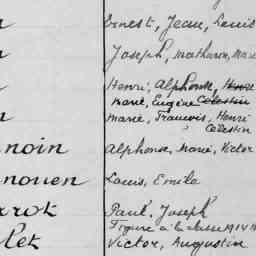 Ernest, Jean, Louis
Joseph, Mathurin, Marie
Henri, Alphonse, Henri
Marie, Eugène Célestin
Marie, François, Henri
Célestin
noin Alphonse, Marie, Victor
nouen Louis, Emile
rrot Paul, Joseph
Figure à la classe 1914
let Victor, Augustin